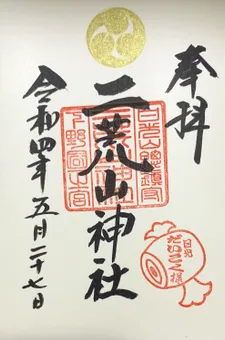 奉拝
二荒山神社
日光山總鎮守
下野國一宮
日光
だいこく様
令和四年五月二十七日